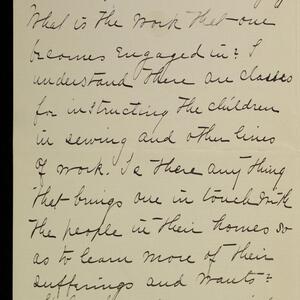 What is the work that one
becomes engaged in? I
understand there are classes
for instructing the children
in sewing and other lines
of work. Is there any thing
that brings one in touch with
the people in their homes so
as to learn more of their
sufferings and wants?